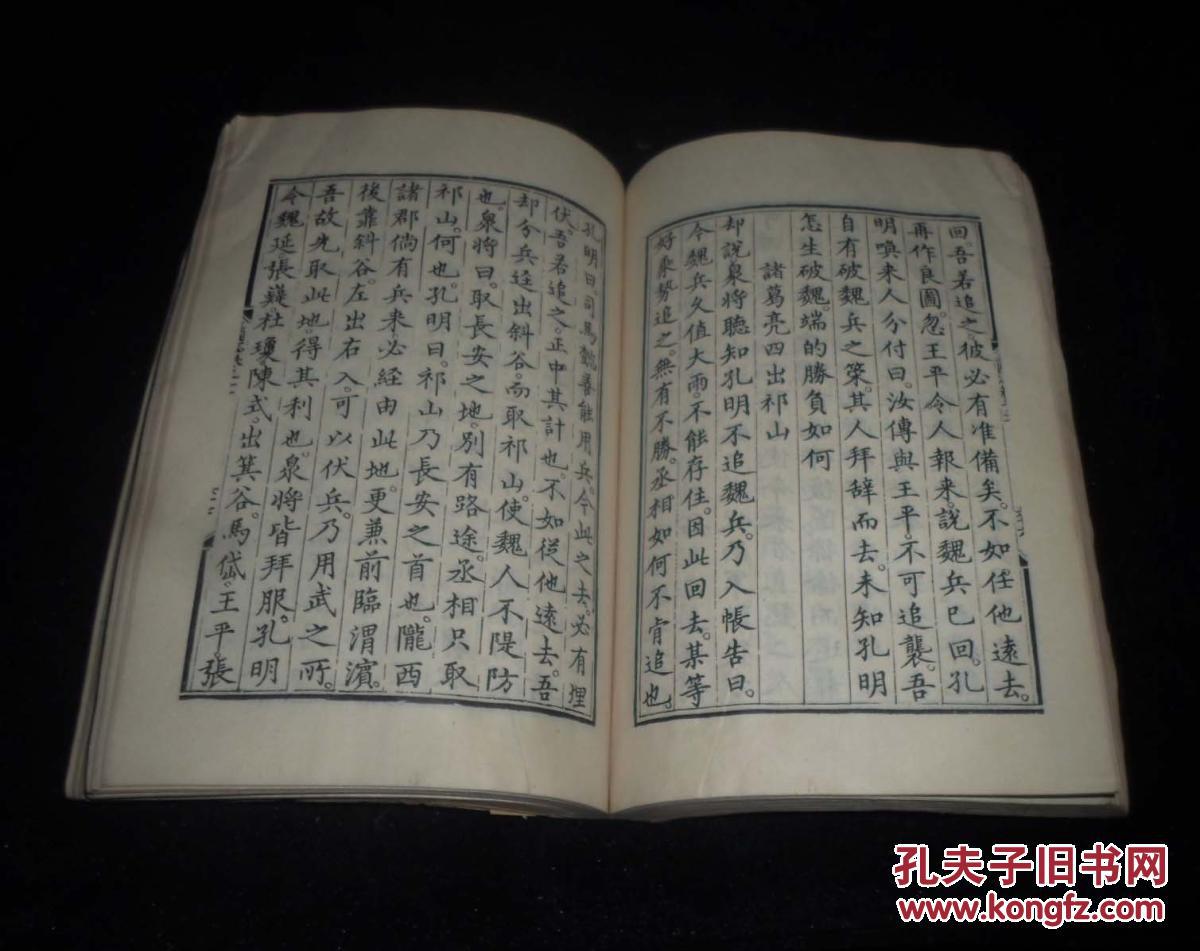 回。吾若追之。彼必有准備矣。不如任他遠去。
再作良圖。忽王平令人報来說魏兵已回。孔
明喚来人分付曰。汝傳與王平。不可追襲。吾
自有破魏兵之策。其人拜辞而去。未知孔明
怎生破魏。端的勝負如何
諸葛亮四出祁山
却說衆將聽知孔明不追魏兵。乃入帳告曰。
今魏兵久值大雨。不能存住。因此回去。某等
好乗勢追之。無有不勝。丞相如何不肯追也。
孔明曰。司馬懿善能用兵。今此之去。必有埋
伏。吾若追之。正中其計也。不如從他遠去。吾
却分兵逕出斜谷。而取祁山。使魏人不隄防
也。衆將曰。取長安之地。別有路途。丞相只取
祁山。何也。孔明曰。祁山乃長安之首也。隴西
諸郡倘有兵来。必經由此地。更兼前臨渭濵。
後靠斜谷。左出右入。可以伏兵。乃用武之所。
吾故先取此地。得其利也。衆將皆拜服。孔明
令魏延。張嶷。杜瓊。陳式。出箕谷。馬岱。王平。張
孔夫子旧书网
www.kongfz.com